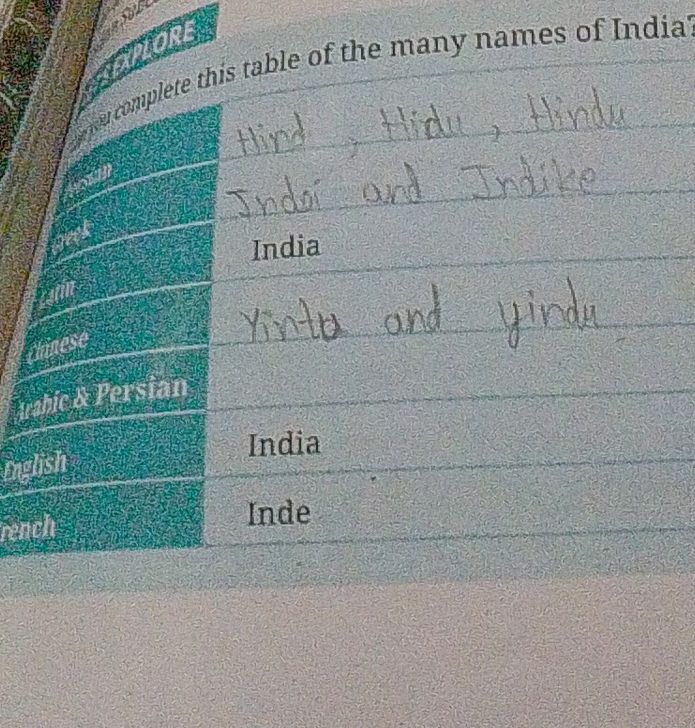 EXPLORE
complete this table of the many names of India?
Hind , Hidu , Hindu
Indoi and Indike
Greek
India
Latin
Yintu and yindu
Chinese
Arabic & Persian
English India
French Inde